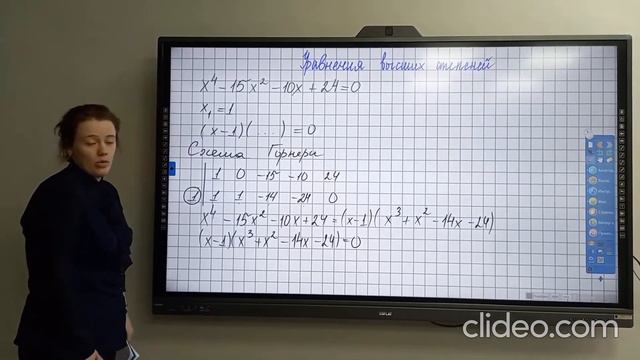 Уравнения высших степеней
x⁴ - 15x² - 10x + 24 = 0
x₁ = 1
(x-1)( ... ) = 0
Схема Горнера
1 0 -15 -10 24
1 1 1 -14 -24 0
x⁴ - 15x² - 10x + 24 = (x-1)( x³ + x² - 14x - 24)
(x-1)(x³ + x² - 14x - 24) = 0
clideo.com